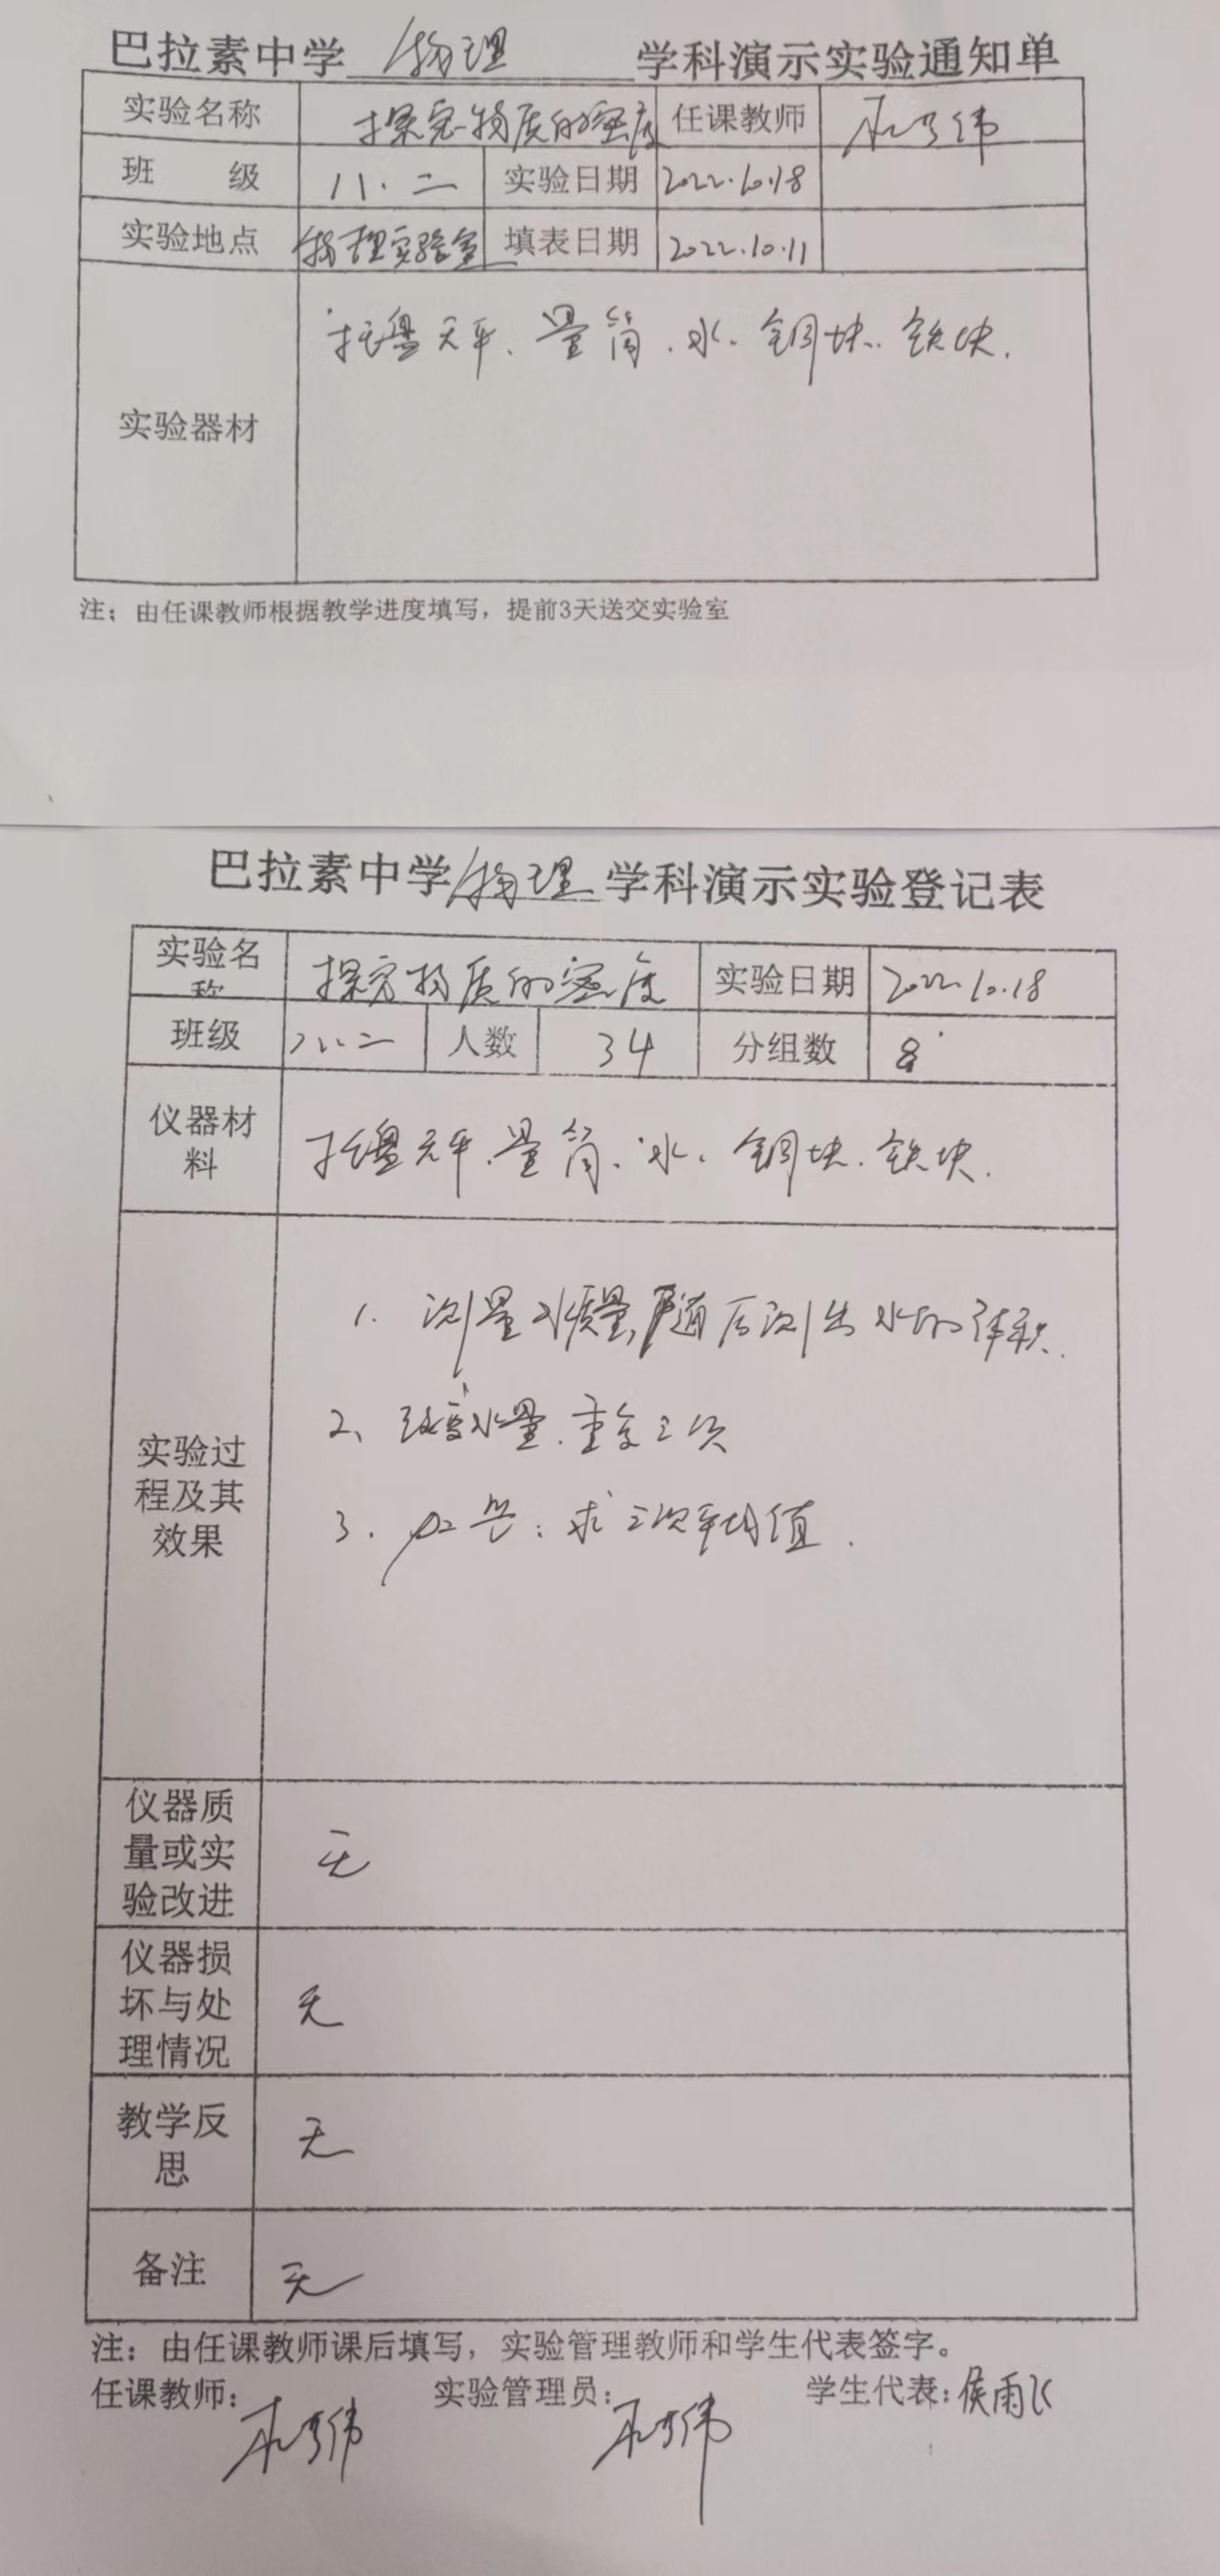 巴拉素中学 物理 学科演示实验通知单
实验名称 探究物质的密度 任课教师
班 级 八.二 实验日期 2022.10.18
实验地点 物理实验室 填表日期 2022.10.11
实验器材 托盘天平、量筒、水、铜块、铁块.
注：由任课教师根据教学进度填写，提前3天送交实验室
巴拉素中学 物理 学科演示实验登记表
实验名称 探究物质的密度 实验日期 2022.10.18
班级 八.二 人数 34 分组数 8
仪器材料 托盘天平、量筒、水、铜块、铁块.
实验过程及其效果
1. 测量水质量, 后测出水的体积.
2、改变水量.重复三次
3. 求三次平均值.
仪器质量或实验改进 无
仪器损坏与处理情况 无
教学反思 无
备注 无
注：由任课教师课后填写，实验管理教师和学生代表签字。
任课教师： 实验管理员： 学生代表：侯雨飞